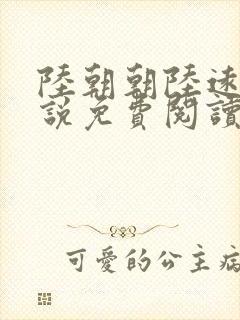 陸朝朝陸遠
說免費閱讀
可愛的公主病